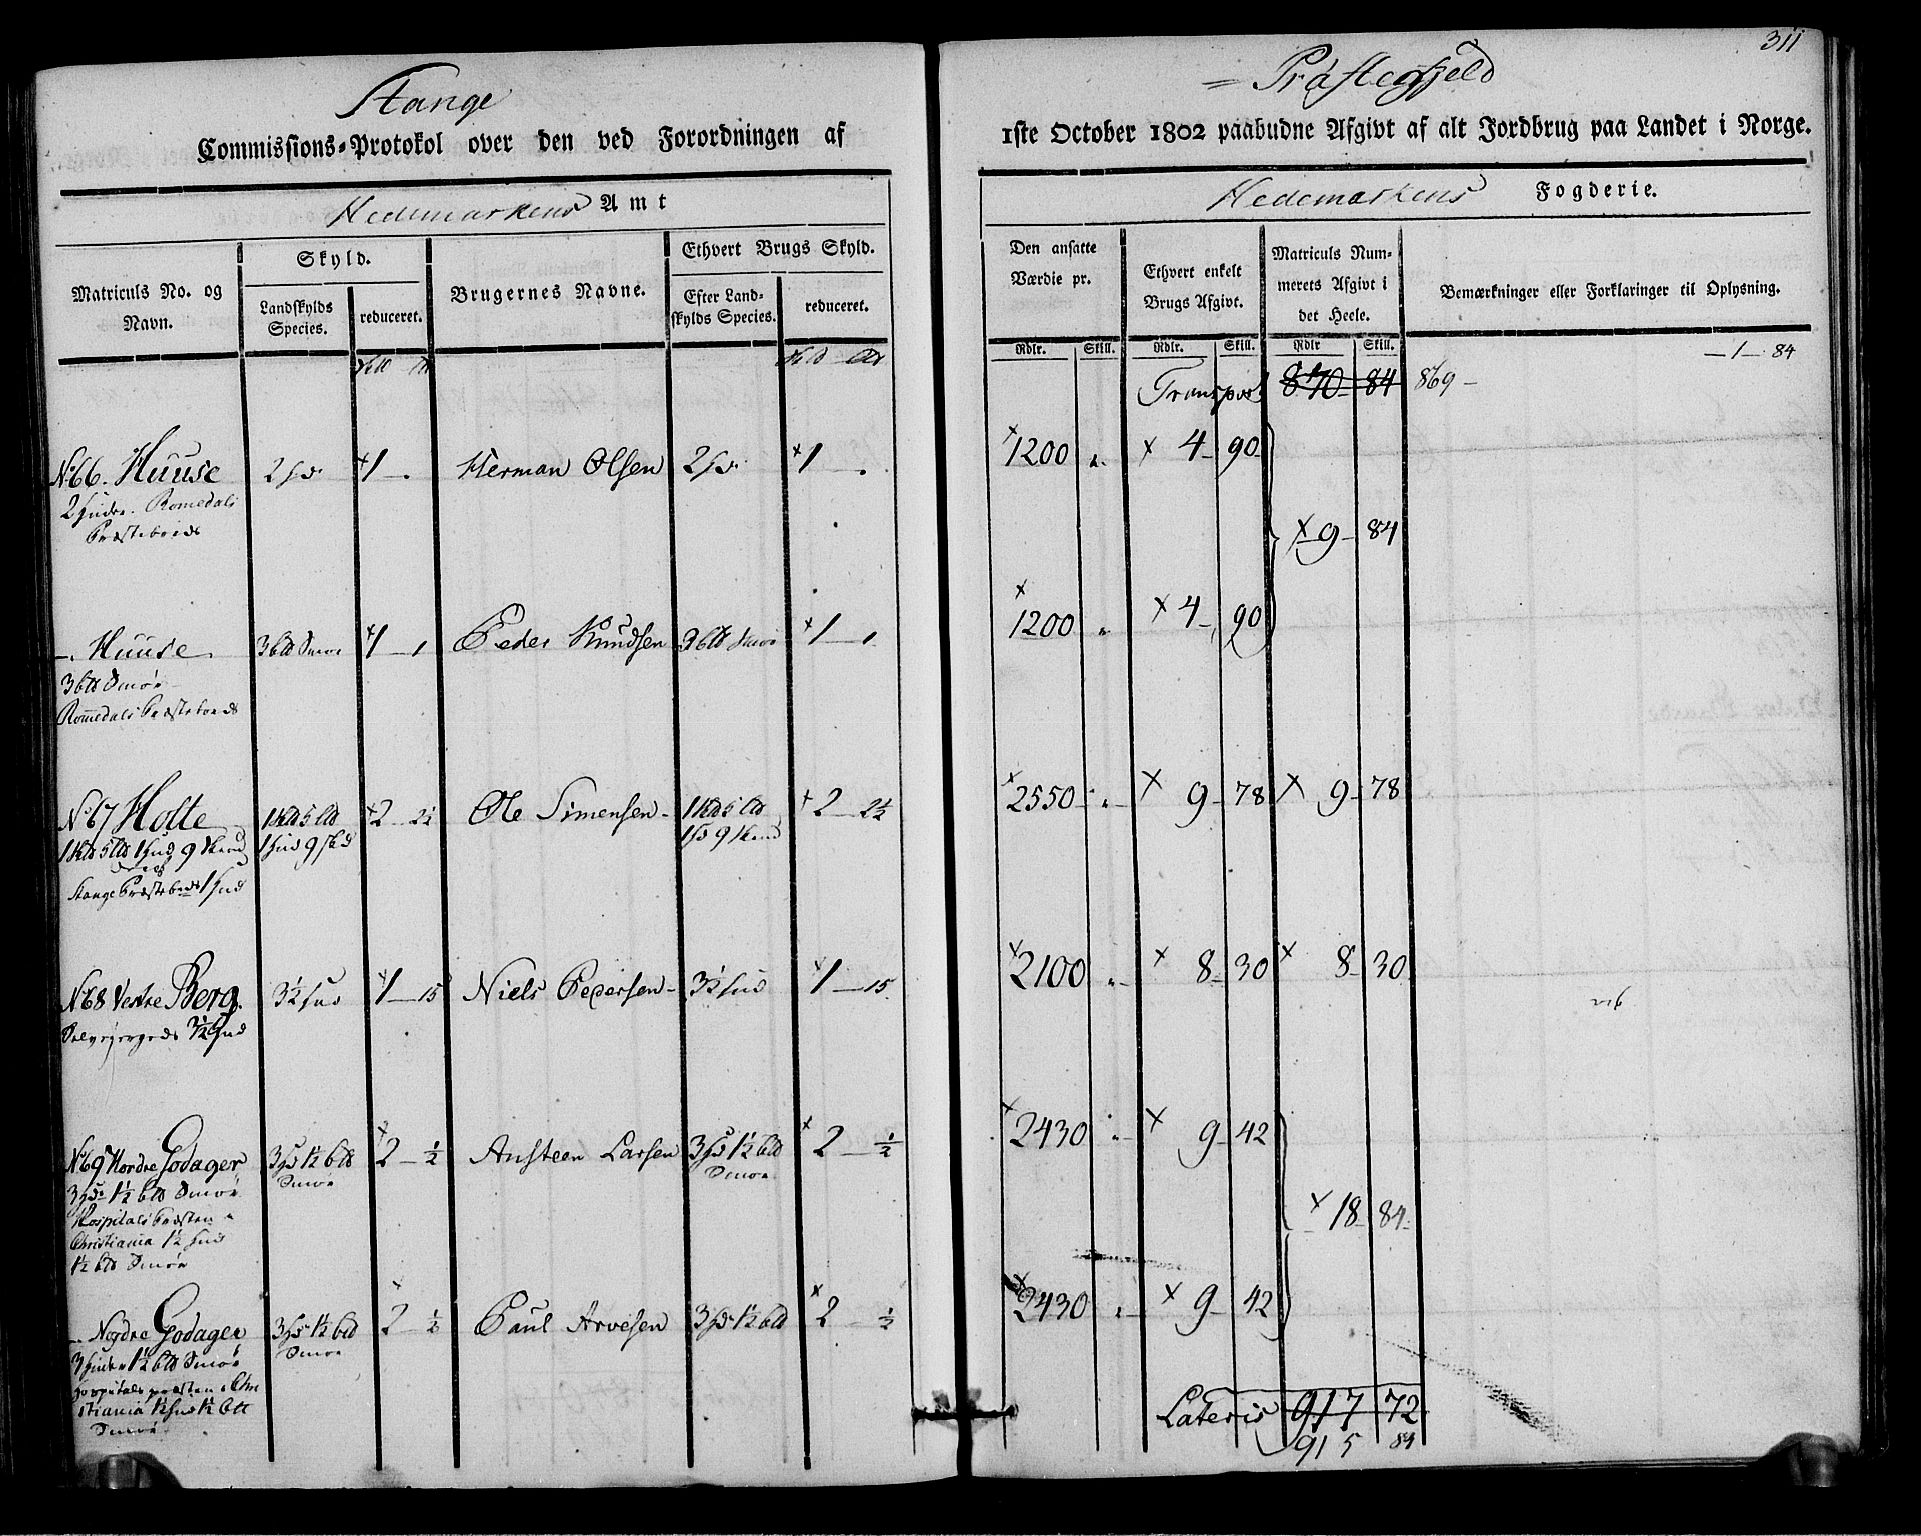 311
Stange = Præstegjeld
Commissions-Protokol over den ved Forordningen af 1ste October 1802 paabudne Afgivt af alt Jordbrug paa Landet i Norge.
Hedemarkens Amt Hedemarkens Fogderie.
Matriculs No. og Navn. Skyld. Landskylds Species. reduceret. Brugernes Navne. Ethvert Brugs Skyld. Efter Landskylds Species. reduceret.
Den ansatte Værdie pr. Ethvert enkelt Brugs Afgivt. Matriculs Nummerets Afgivt i det Heele. Bemærkninger eller Forklaringer til Oplysning.
Rdlr. Skill. Rdlr. Skill. Rdlr Skill.
Transport 870 84 869 - - 1 - 84
No 66. Huuse 2 hd 1 - . Herman Olsen 2 hd 1 - . 1200 4 - 90
2 huder. Romedals
Præstebords
9 - 84
- Huuse 3 btt Smør 1 - 1 Peder Knudsen 3 btt Smør 1 - 1 1200 4 - 90
3 btt Smør
Romedals Præstebords
No 67 Holte 2 - 2½ Ole Simensen - 2 - 2½ 2550 9 - 78 9 - 78
1 hud 9 Skind
Stange Præstebords 1 hud
No 68 Vestre Berg. 3½ hud 1 - 15 Niels Pedersen - 3½ hud 1 - 15. 2100 8 - 30 8 - 30
Selveiergods 3½ hud
No 69 Nordre Godager 3 hd 1½ btt Smør 2 - ½ Ansteen Larsen 3 hd 1½ btt Smør 2 - ½ 2430 9 - 42
3 hdr 1½ btt Smør
Hospitals Præsten
Christiania 1½ hud
1½ btt Smør
18 - 84
- Nordre Godager 3 hdr 1½ btt Smør 2 - ½ Paul Arvesen 3 hdr 1½ btt 2 - ½ 2430 9 - 42
3 huder 1½ btt Smør
Hospitals præsten i Chri
stiania 1½ hud 1½ btt
Smør
Lateris 917 72
915 84